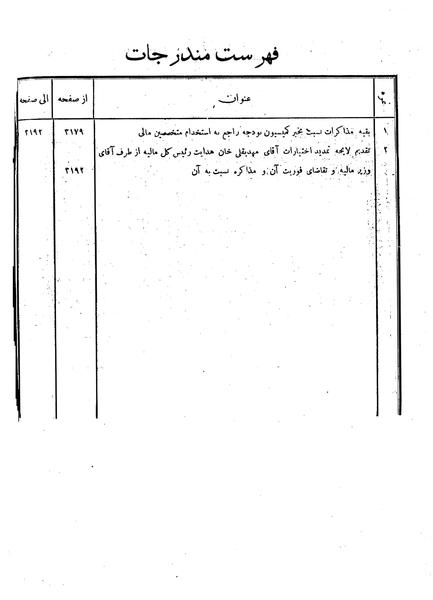 فهرست مندرجات
عنوان از صفحه الی صفحه
۱ بقیه مذاکرات نسبت بخبر کمیسیون بودجه راجع به استخدام متخصصین مالی ۳۱۷۹ ۳۱۹۲
۲ تقدیم لایحه تمدید اختیارات آقای مهدیقلی خان هدایت رئیس کل مالیه از طرف آقای
وزیر مالیه و تقاضای فوریت آن و مذاکره نسبت به آن ۳۱۹۲